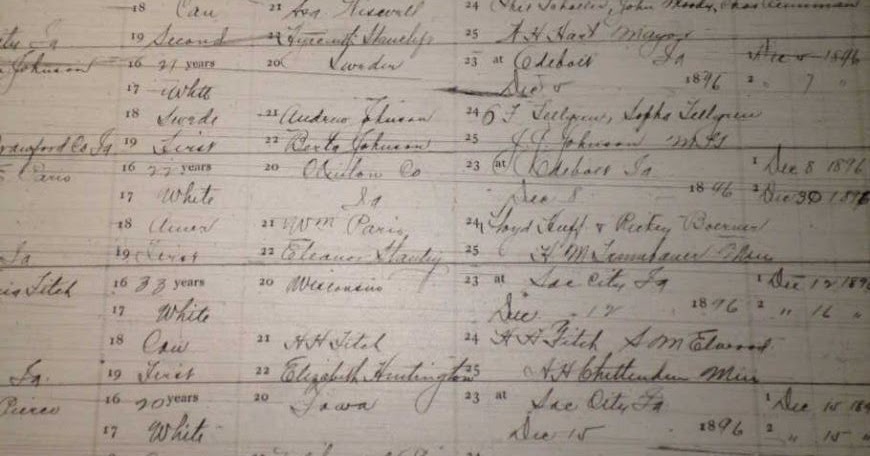 18 Cau 21 Asa 24
ity Ia 19 Second 22 25 A H Hart Mayor
Johnson 16 21 years 20 Sweden 23 at Odebolt Ia 1 Dec 5 1896
17 White Dec 5 1896 2 " 7 "
18 Swede 21 Andrew Johnson 24 O F Tellgren, Sopha Tellgren
Crawford Co Ia 19 First 22 Berta Johnson 25 J. E. Johnson M G
Paris 16 22 years 20 Clinton Co 23 at Odebolt Ia 1 Dec 8 1896
17 White Ia Dec 8 1896 2 Dec 30 1896
18 Amer 21 Wm Paris 24 Lloyd Huff & Rickey Boerner
Ia 19 First 22 Eleanor 25 H M
Fitch 16 33 years 20 Wisconsin 23 at Sac City Ia 1 Dec 12 1896
17 White Dec 12 1896 2 " 16 "
18 Cau 21 H H Fitch 24 H H Fitch S M Elwood
Ia. 19 First 22 Elizabeth Huntington 25 A H Chittenden Min
Pierce 16 20 years 20 Iowa 23 at Sac City Ia 1 Dec 15 189
17 White Dec 15 1896 2 " 15 "
22